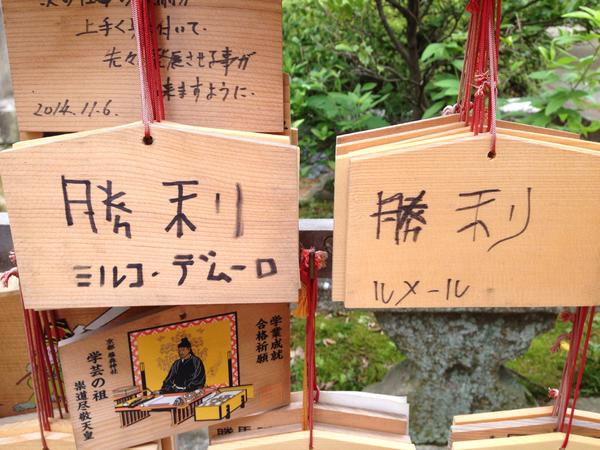 上手く片付いて、
先々発展させる事が
来ますように。
2014.11.6.
勝利
ミルコ・デムーロ
勝利
ルメール
学業成就
合格祈願
京都 藤森神社
学芸の祖
崇道尽敬天皇
勝馬